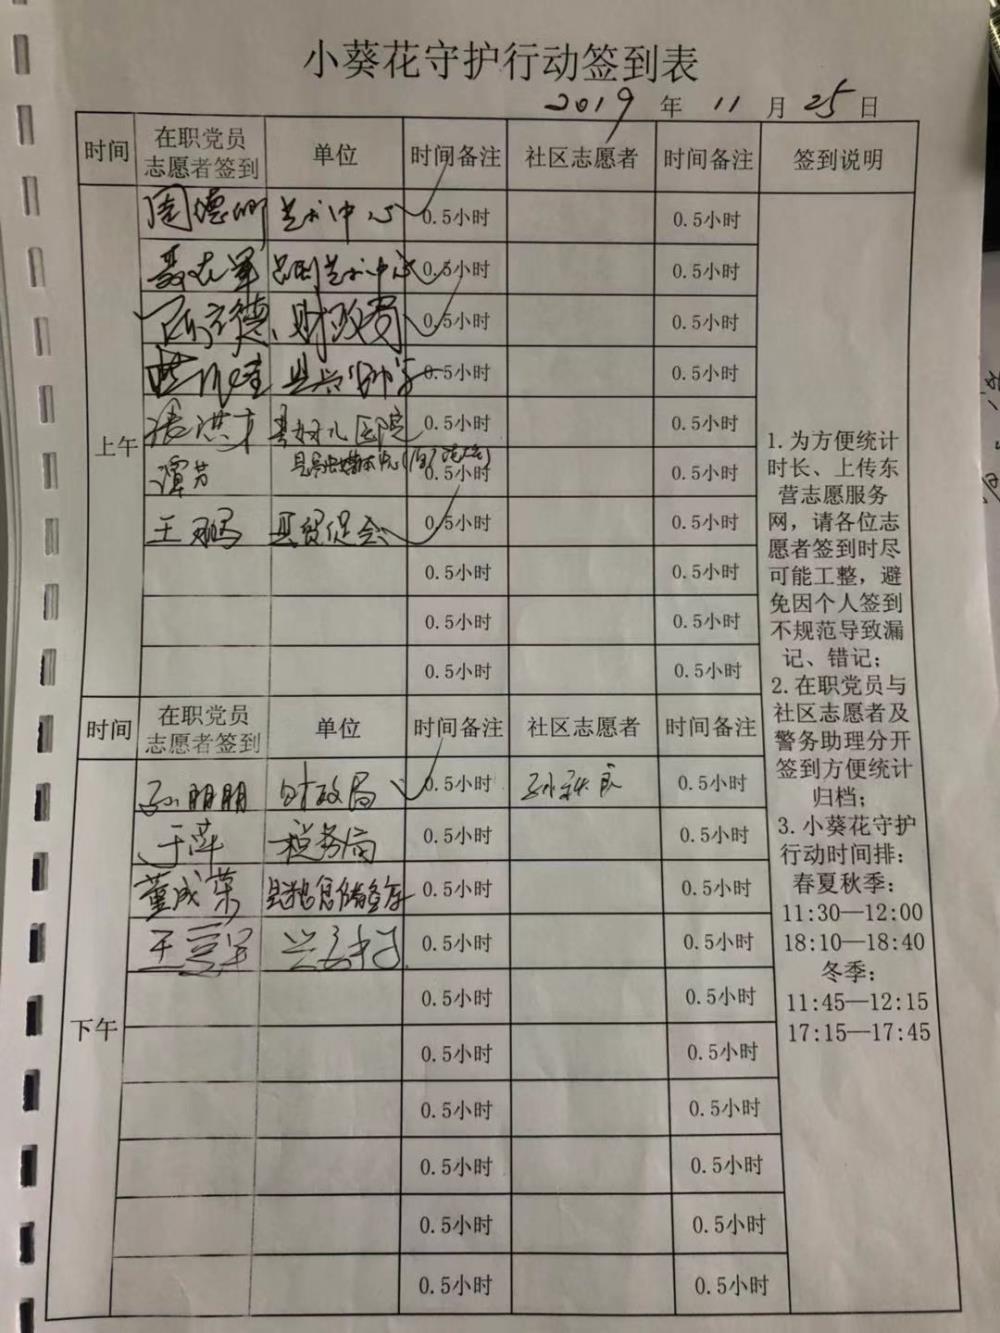 小葵花守护行动签到表
2019 年 11 月 25 日
时间 在职党员志愿者签到 单位 时间备注 社区志愿者 时间备注 签到说明
上午
艺术中心 0.5小时 0.5小时
艺术中心 0.5小时 0.5小时
0.5小时 0.5小时
0.5小时 0.5小时
张洪才 县妇儿医院 0.5小时 0.5小时
谭芳 0.5小时 0.5小时
王鹏 县贸促会 0.5小时 0.5小时
0.5小时 0.5小时
0.5小时 0.5小时
0.5小时 0.5小时
时间 在职党员志愿者签到 单位 时间备注 社区志愿者 时间备注
下午
孙朋朋 财政局 0.5小时 0.5小时
于萍 税务局 0.5小时 0.5小时
董成荣 0.5小时 0.5小时
0.5小时 0.5小时
0.5小时 0.5小时
0.5小时 0.5小时
0.5小时 0.5小时
0.5小时 0.5小时
0.5小时 0.5小时
0.5小时 0.5小时
1.为方便统计
时长、上传东
营志愿服务
网，请各位志
愿者签到时尽
可能工整，避
免因个人签到
不规范导致漏
记、错记；
2.在职党员与
社区志愿者及
警务助理分开
签到方便统计
归档；
3.小葵花守护
行动时间排：
春夏秋季：
11:30—12:00
18:10—18:40
冬季：
11:45—12:15
17:15—17:45